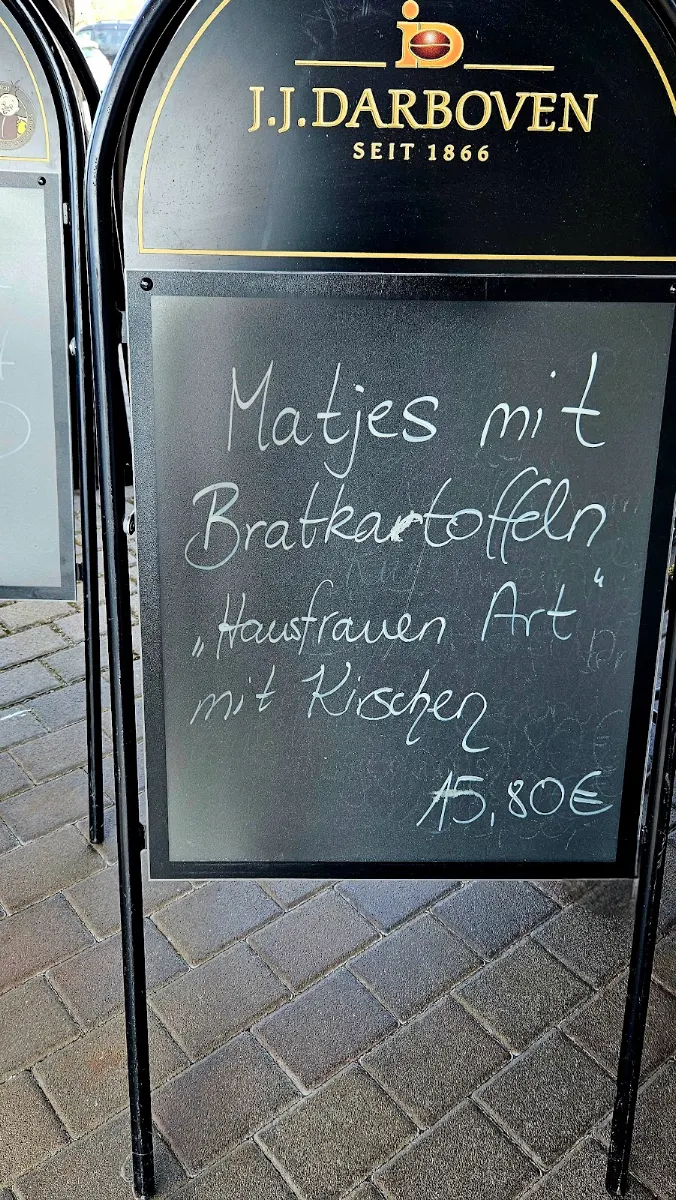 J.J. DARBOVEN
SEIT 1866
Matjes mit
Bratkartoffeln
„Hausfrauen Art“
mit Kirschen
15,80€